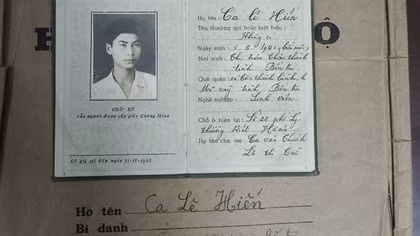 CHỮ KÝ
của người được cấp giấy Chứng Minh
Có giá trị đến ngày 31-12-1962
Họ tên: Ca Lê Hiến
Tên thường gọi hoặc biệt hiệu:
Không có
Ngày sinh:
Nơi sinh: Thị trấn Châu thành
tỉnh Bến tre
Quê quán: Châu thành
tỉnh Bến tre
Nghề nghiệp: Sinh viên
Chỗ ở hiện tại: Số 20 phố Lý
thường Kiệt Hà nội
Họ tên cha, mẹ: Ca văn Thỉnh
Lê thị
Họ tên Ca Lê Hiến
Bí danh